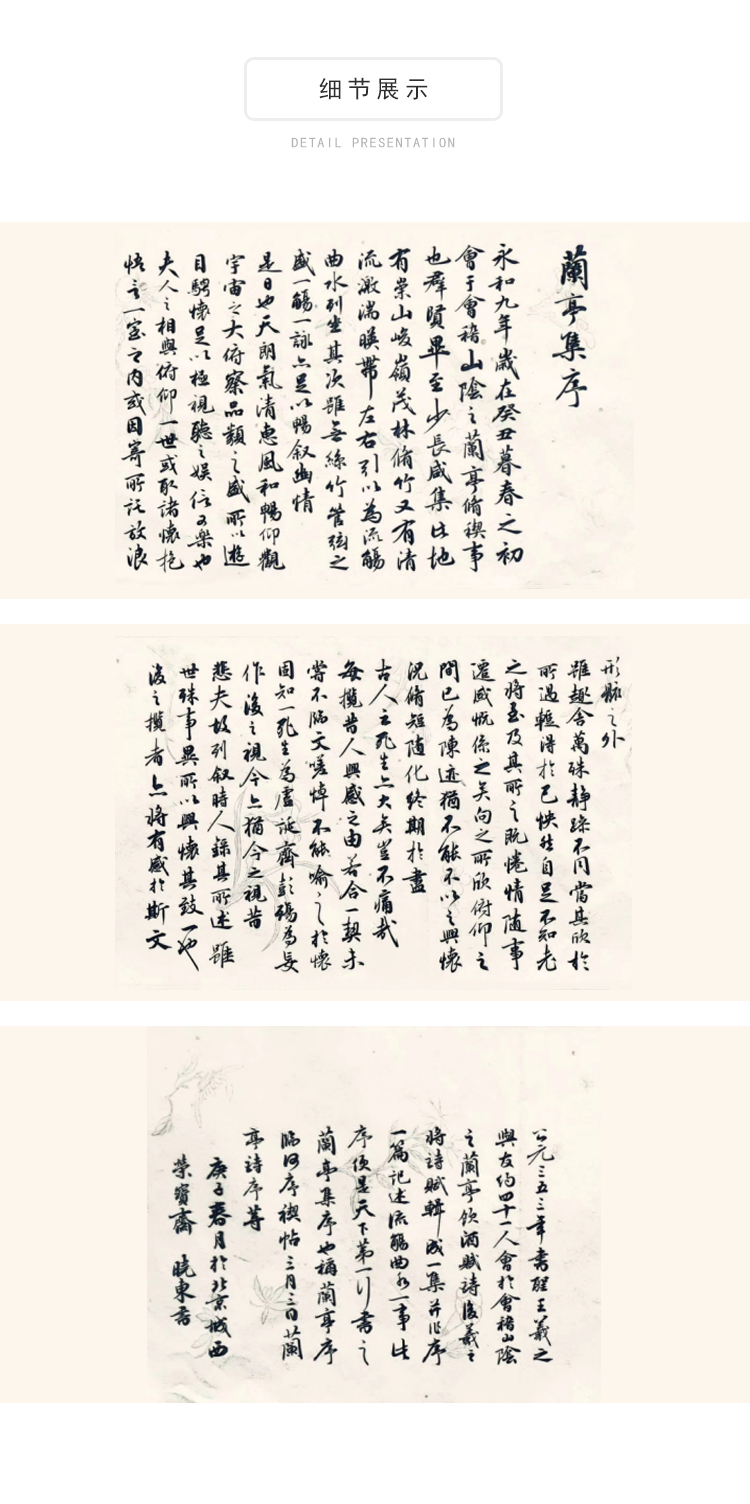 细节展示
DETAIL PRESENTATION
蘭亭集序
永和九年歲在癸丑暮春之初
會于會稽山陰之蘭亭脩禊事
也羣賢畢至少長咸集此地
有崇山峻嶺茂林脩竹又有清
流激湍暎帶左右引以為流觴
曲水列坐其次雖無絲竹管弦之
盛一觴一詠亦足以暢叙幽情
是日也天朗氣清惠風和暢仰觀
宇宙之大俯察品類之盛所以遊
目騁懷足以極視聽之娱信可樂也
夫人之相與俯仰一世或取諸懷抱
悟言一室之內或因寄所託放浪
形骸之外
雖趣舍萬殊靜躁不同當其欣於
所遇輒得於己怏然自足不知老
之將至及其所之既惓情隨事
遷感慨係之矣向之所欣俯仰之
間已為陳迹猶不能不以之興懷
況脩短隨化終期於盡
古人云死生亦大矣豈不痛哉
每攬昔人興感之由若合一契未
嘗不臨文嗟悼不能喻之於懷
固知一死生為虛誕齊彭殤為妄
作後之視今亦猶今之視昔
悲夫故列叙時人錄其所述雖
世殊事異所以興懷其致一也
後之攬者亦將有感於斯文
公元三五三年書聖王羲之
與友約四十一人會於會稽山陰
之蘭亭飲酒賦詩後羲之
將詩賦輯成一集并作序
一篇記述流觴曲水一事此
序便是天下第一行書之
蘭亭集序也稱蘭亭序
臨河序禊帖三月三日蘭
亭詩序等
庚子春月於北京城西
榮寶齋 曉東書